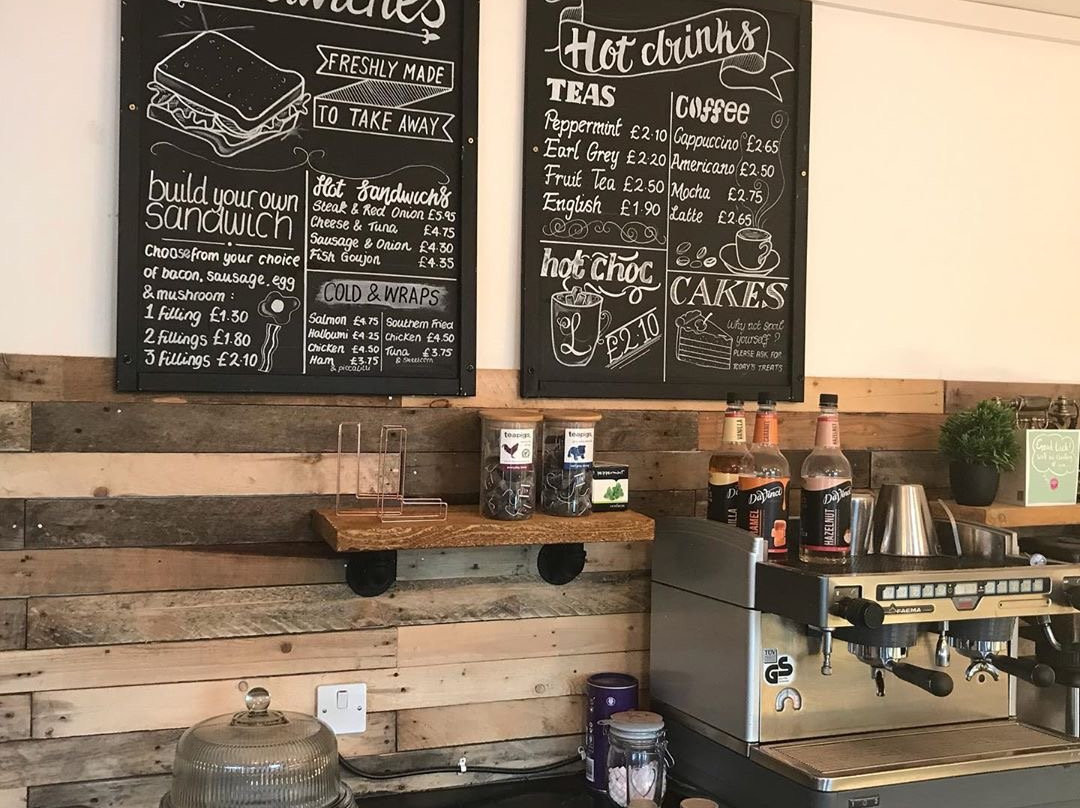 FRESHLY MADE
TO TAKE AWAY
build your own
SANDWICH
Choose from your choice
of bacon, sausage, egg
& mushroom :
1 Filling £1.30
2 Fillings £1.80
3 Fillings £2.10
Hot Sandwich's
Steak & Red Onion £5.95
Cheese & Tuna £4.75
Sausage & Onion £4.30
Fish Goujon £4.35
COLD & WRAPS
Salmon £4.75
Halloumi £4.25
Chicken £4.50
Ham £3.75
& piccalilli
Southern Fried
Chicken £4.50
Tuna £3.75
& sweetcorn
Hot drinks
TEAS
Peppermint £2.10
Earl Grey £2.20
Fruit Tea £2.50
English £1.90
Coffee
Cappuccino £2.65
Americano £2.50
Mocha £2.75
Latte £2.65
hot choc
L
£2.10
CAKES
Why not spoil
yourself?
PLEASE ASK FOR
TODAY'S TREATS
teapigs.
teapigs.
peppermint
VANILLA
DaVinci
HAZELNUT
DaVinci
HAZELNUT
Good Luck!
FAEMA
TÜV
GS